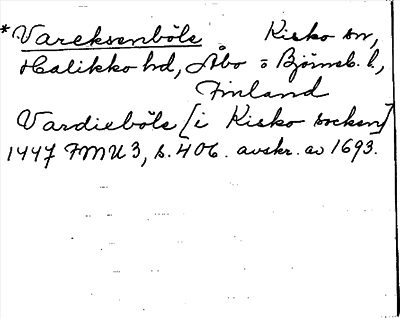 *Vareksenböle Kisko sn,
Halikko hd, Åbo o Björneb. l.,
Finland
Vardieböle [i Kisko socken]
1447 FMU 3, s. 406. avskr. av 1693.